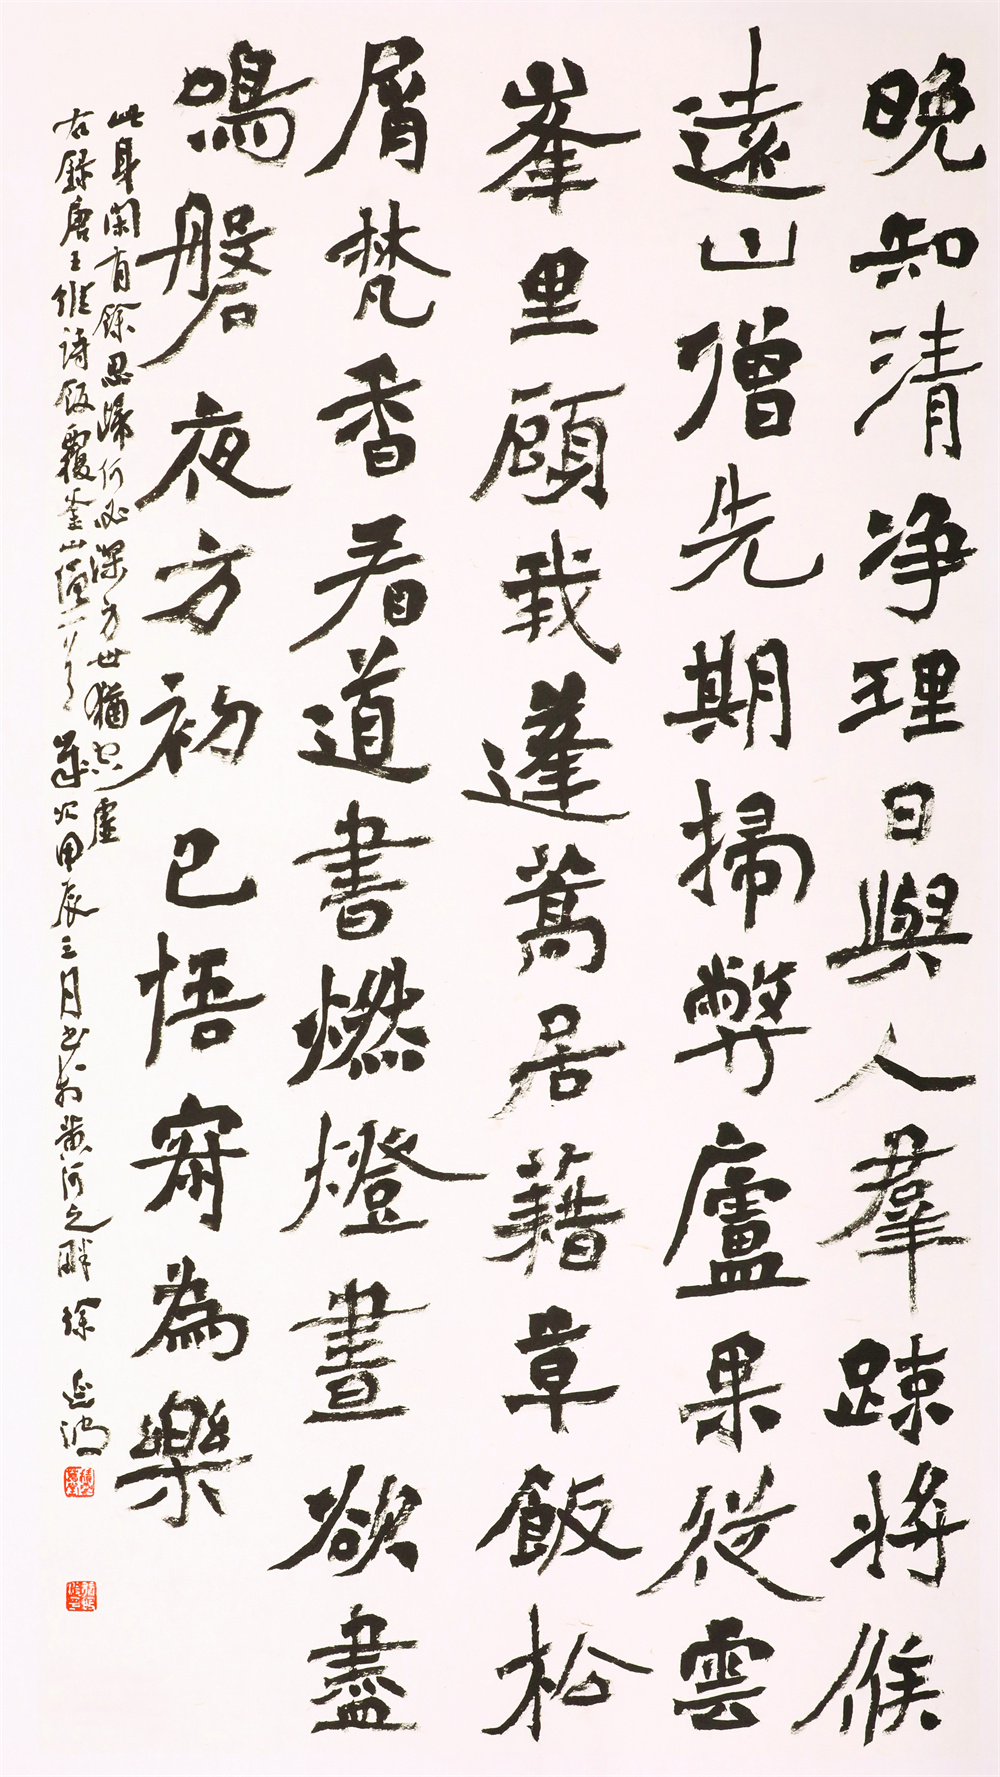 晚知清净理日與人羣踈将候
遠山僧先期掃弊廬果從雲
峯里顧我蓬蒿居藉草飯松
屑梵香看道書燃燈晝欲盡
鳴磐夜方初已悟寂為樂
此身閑有餘思歸何必深身世猶空虛
右録唐王維詩飯覆釜山僧一首 歲次甲辰三月書於黄河之畔 徐